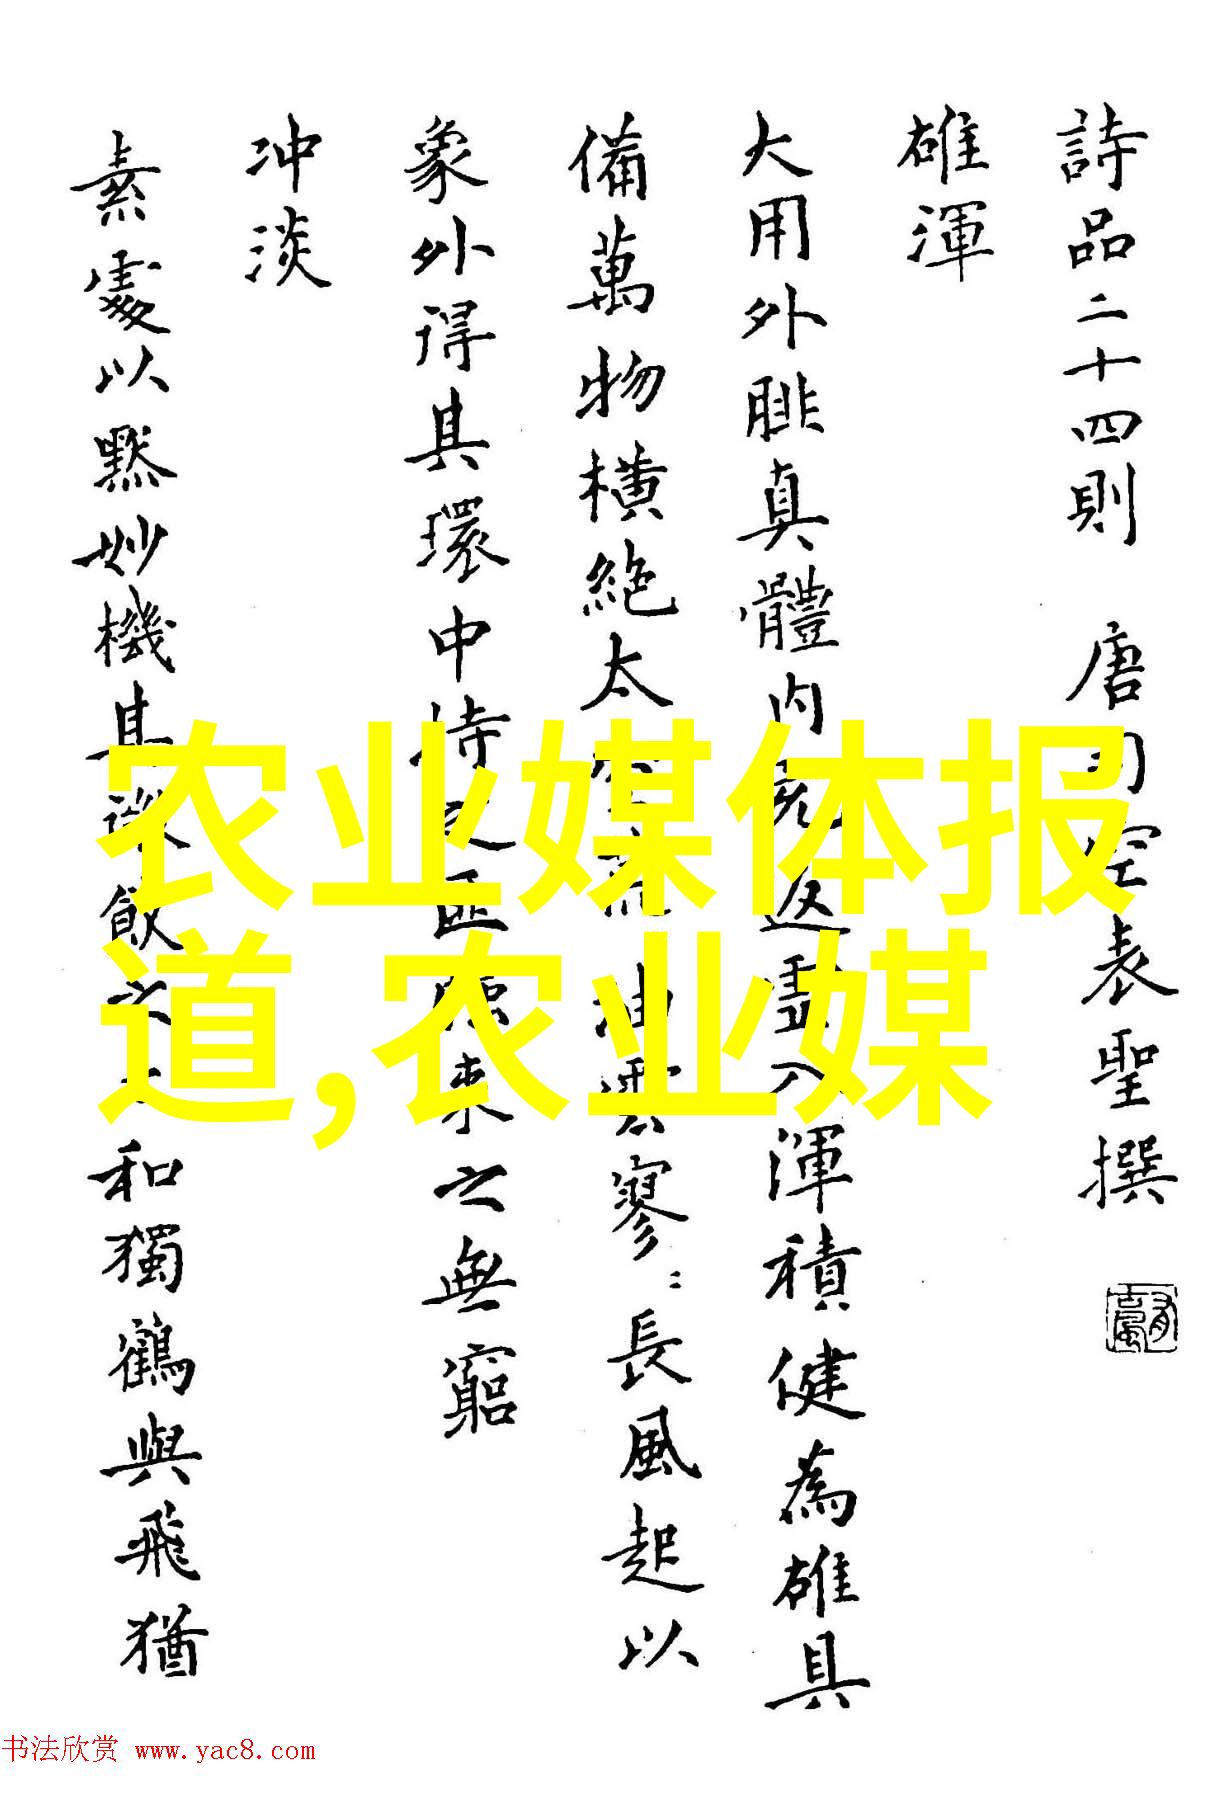 詩品二十四則 唐司空表聖撰
雄渾
大用外腓真體內充返虛入渾積健為雄具
備萬物橫絕太空荒荒油雲寥〻長風起以
象外得其環中持之匪強來之無窮
冲淡
素處以默妙機其微飲之太和獨鶴與飛猶
农业媒体报
道,农业媒
书法欣赏 www.yac8.com